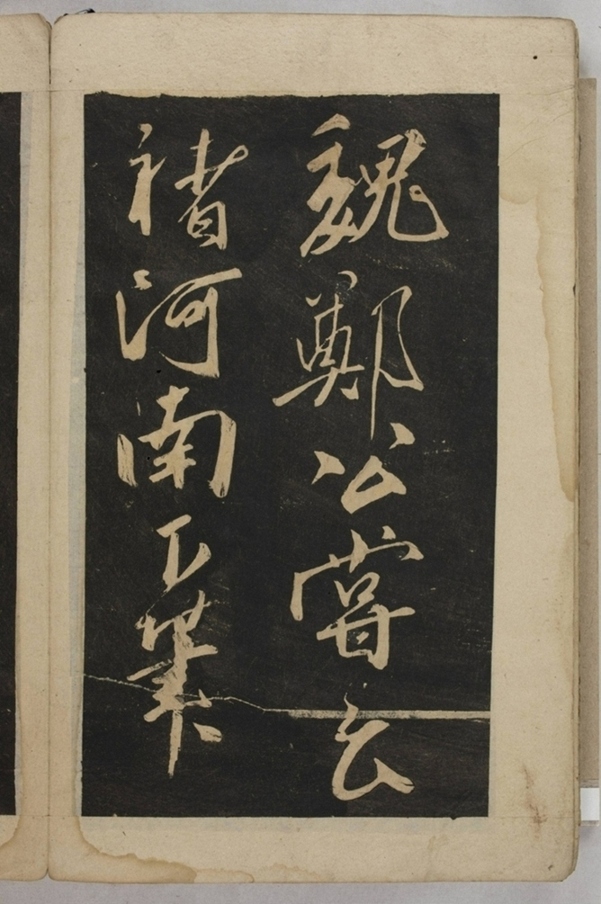 魏鄭公嘗云
褚河南下筆